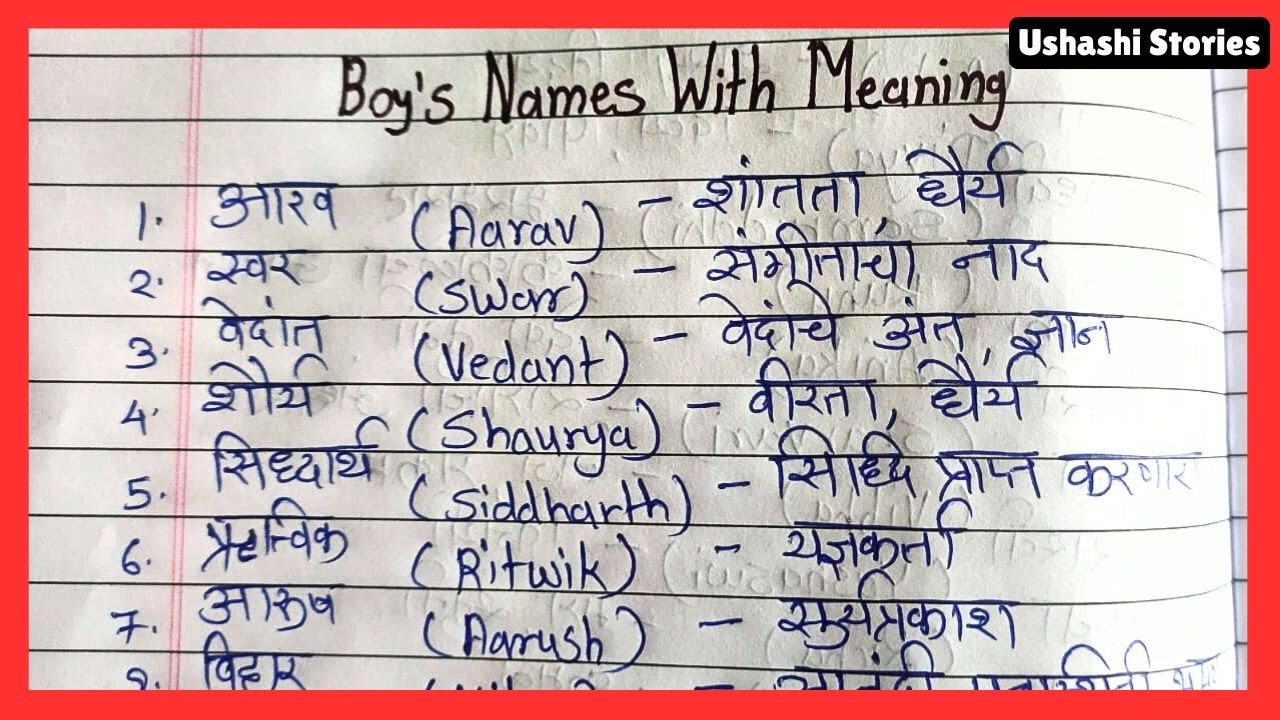 Ushashi Stories
Boy's Names With Meaning
1. आरव (Aarav) - शांतता, धैर्य
2. स्वर (Swar) - संगीताचा, नाद
3. वेदांत (Vedant) - वेदांचे अंत, ज्ञान
4. शौर्य (Shaurya) - वीरता, धैर्य
5. सिध्दार्थ (Siddharth) - सिध्दि प्राप्त करणार
6. ऋत्विक (Ritwik) - यज्ञकर्ता
7. आरुष (Aarush) - सुर्यप्रकाश
8. विहार